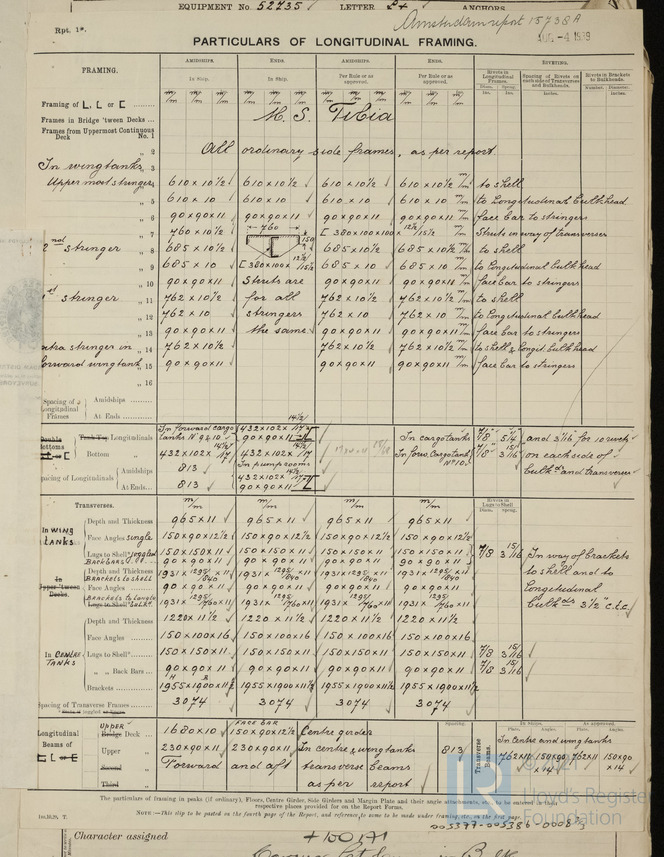 EQUIPMENT No. 52735 LETTER ANCHORS
Amsterdam report 15738A
Rpt. 1*. AUG -4 1939
PARTICULARS OF LONGITUDINAL FRAMING.
FRAMING. AMIDSHIPS. ENDS. AMIDSHIPS. ENDS. RIVETING.
In Ship. In Ship. Per Rule or as approved. Per Rule or as approved. Rivets in Longitudinal Frames. Spacing of Rivets on each side of Transverses and Bulkheads. Rivets in Brackets to Bulkheads.
Framing of L, L or C
Frames in Bridge 'tween Decks M. S. Tibia
Frames from Uppermost Continuous Deck No. 1
" 2 All ordinary side frames, as per report.
In wing tanks " 3
Uppermost stringer " 4 610 x 10½ 610 x 10½ 610 x 10½ 610 x 10½ to shell
" 5 610 x 10 610 x 10 610 x 10 610 x 10 to Longitudinal bulkhead
" 6 90x90x11 90x90x11 90x90x11 90x90x11 face bar to stringers
" 7 760 x 10½ 760 760 x 10½ Struts in way of transverses
2nd stringer " 8 685 x 10½ 150 685 x 10½ 685 x 10½ to shell
" 9 685 x 10 [380x100x 685 x 10 685 x 10 to Longitudinal bulkhead
" 10 90x90x11 Struts are 90x90x11 90x90x11 face bar to stringers
1st stringer " 11 762 x 10½ for all 762 x 10½ 762 x 10½ to shell
" 12 762 x 10 stringers 762 x 10 762 x 10 to Longitudinal bulkhead
" 13 90x90x11 the same 90x90x11 90x90x11 face bar to stringers
extra stringer in " 14 762 x 10½ 762 x 10½ 762 x 10½ to shell & longit. bulkh
forward wing tank " 15 90x90x11 90x90x11 90x90x11 face bar to stringers
" 16
Spacing of Longitudinal Frames Amidships
At Ends
Double Bottoms Tank Top Longitudinals In forward cargo tanks No 9 & 10 432x102x 90x90x11 In cargo tanks 7/8 and 3 1/16 for 10 rivets
Bottom " 432x102x 17 432x102x 17 In forw. Cargo tank No 10 7/8 3 1/16 on each side of
Spacing of Longitudinals Amidships 813 In pump rooms bulkds and transverses
At Ends 813 432x102x 90x90x11
Transverses. m/m m/m m/m m/m Rivets in Lugs to Shell
IN WING TANKS Depth and Thickness 965 x 11 965 x 11 965 x 11 965 x 11
Face Angles single 150x90x12½ 150x90x12½ 150x90x12½ 150x90x12½
Lugs to Shell joggled 150x150x11 150x150x11 150x150x11 150x150x11 7/8 3 15/16 In way of brackets
Back bars 90x90x11 90x90x11 90x90x11 90x90x11 to shell and to
Depth and Thickness Brackets to shell 1931 x 1295/1840 x 11 1931 x 1295/1840 x 11 1931 x 1295/1840 x 11 1931 x 1295/1840 x 11 Longitudinal
Face Angles 90x90x11 90x90x11 90x90x11 90x90x11 bulkds 3½" c.t.c.
1931 x 1295/1760 x 11 1931 x 1295/1760 x 11 1931 x 1295/1760 x 11 1931 x 1295/1760 x 11
Depth and Thickness 1220 x 11½ 1220 x 11½ 1220 x 11½ 1220 x 11½
Face Angles 150x100x16 150x100x16 150x100x16 150x100x16
IN CENTRE TANKS Lugs to Shell 150x150x11 150x150x11 150x150x11 150x150x11 7/8 3 15/16
" " Back Bars 90x90x11 90x90x11 90x90x11 90x90x11 7/8 3 15/16
Brackets 1955x1900x11½ 1955x1900x11½ 1955x1900x11½ 1955x1900x11½
Spacing of Transverse Frames 3074 3074 3074 3074
Longitudinal Beams of UPPER Bridge Deck 1680 x 10 FACE BAR 150x90x12½ Centre girder Spacing. Transverse Beams. In Ships. As approved.
Upper " 230x90x11 230x90x11 In centre & wing tanks 813 In Centre and wing tanks
Second " Forward and aft transverse beams 762x11 150x90 x14 762x11 150x90 x14
Third " as per report
The particulars of framing in peaks (if ordinary), Floors, Centre Girder, Side Girders and Margin Plate and their angle attachments, etc., to be entered in their respective places provided for on the Report Forms.
NOTE:—This slip to be pasted on the fourth page of the Report, and reference to same to be made under framing, etc., on the first page.
© 2021
Lloyd's Register
Foundation
005377-005386-0008
Character assigned +100A1